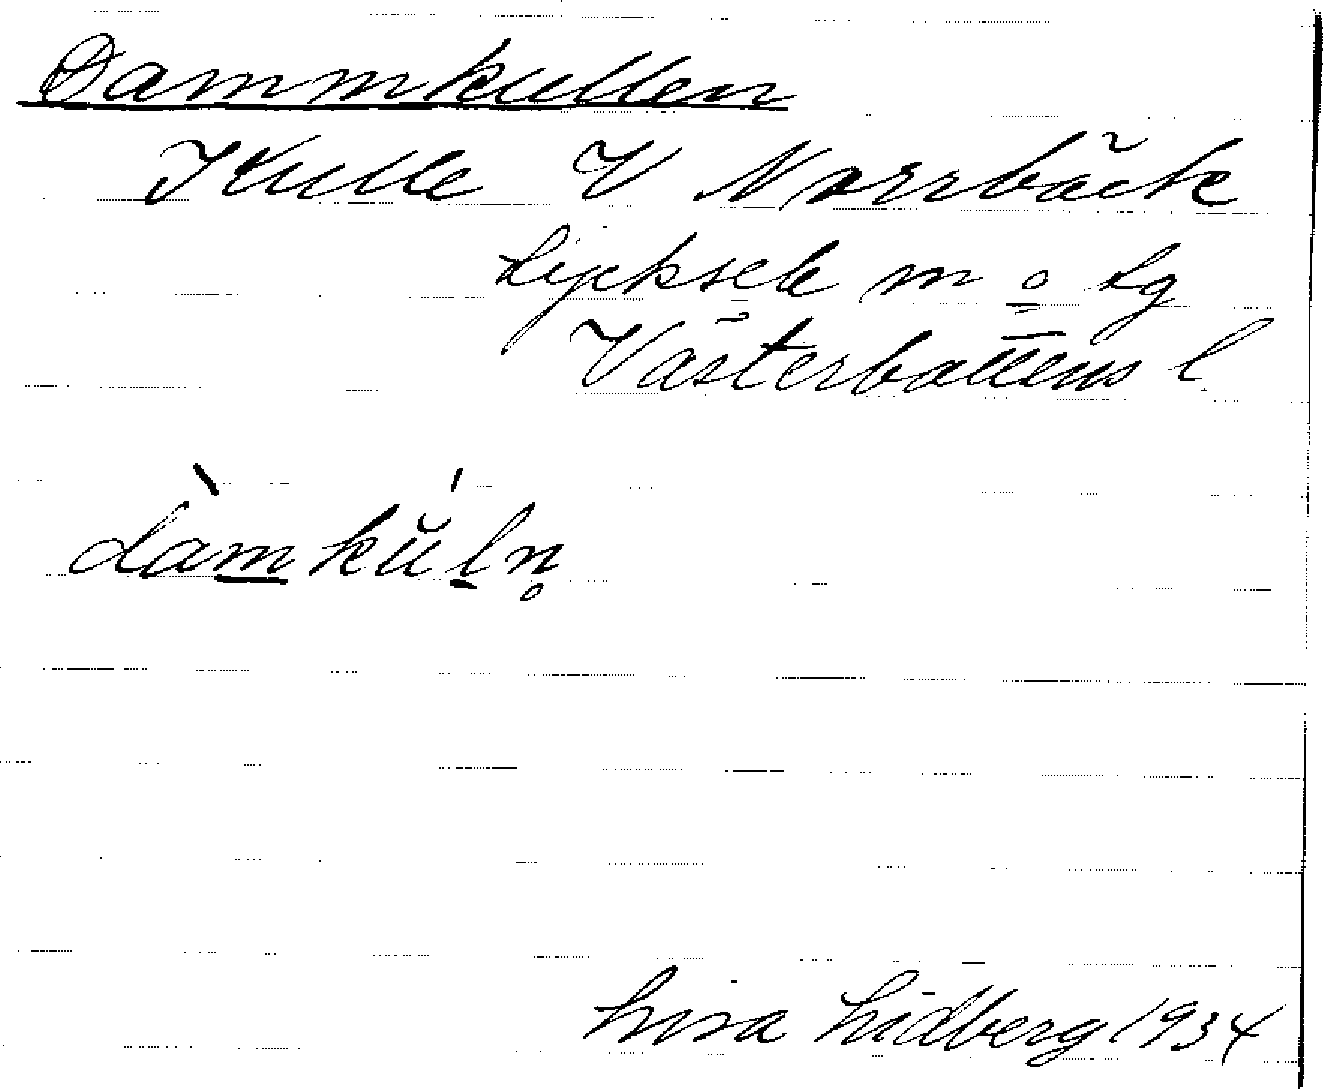 Dammkullen
Kulle V Norrbäck
Lycksele m o lg
Västerbottens l
dàmkŭ́ln̥
Lisa Lidberg 1934